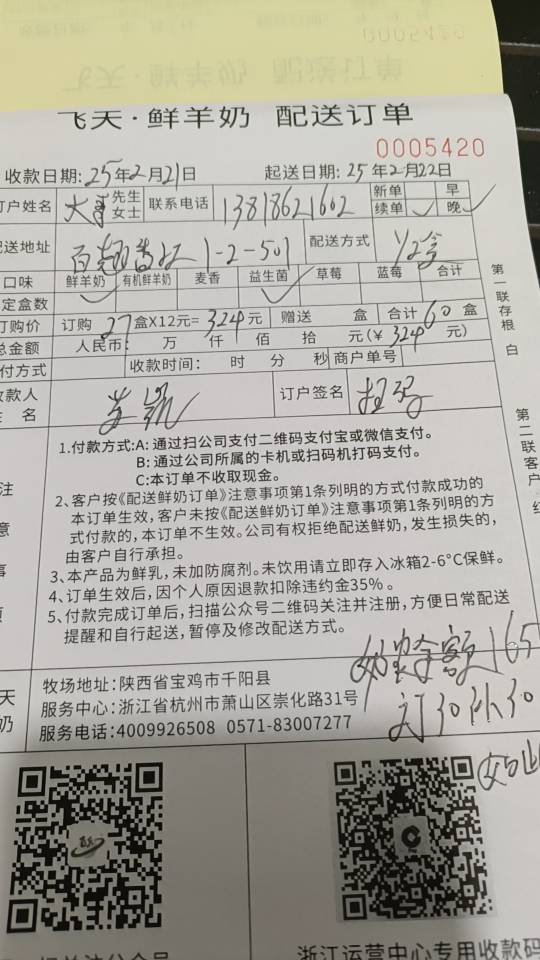 飞天·鲜羊奶 配送订单
0005420
收款日期:25年2月21日 起送日期:25年2月22日
订户姓名 先生 女士 联系电话 13818621602 新单 早
续单 ✓ 晚 ✓
配送地址 1-2-501 配送方式 1/2盒
口味 鲜羊奶 有机鲜羊奶 麦香 益生菌 草莓 蓝莓 合计
定盒数 ✓ ✓
订购价 订购 27 盒X12元= 324 元 赠送 盒 合计 60 盒
总金额 人民币: 万 仟 佰 拾 元(¥ 324 元)
付方式 收款时间: 时 分 秒 商户单号
收款人
姓 名 订户签名
1.付款方式:A: 通过扫公司支付二维码支付宝或微信支付。
B: 通过公司所属的卡机或扫码机打码支付。
C:本订单不收取现金。
2、客户按《配送鲜奶订单》注意事项第1条列明的方式付款成功的
本订单生效,客户未按《配送鲜奶订单》注意事项第1条列明的方
式付款的,本订单不生效。公司有权拒绝配送鲜奶,发生损失的,
由客户自行承担。
3、本产品为鲜乳,未加防腐剂。未饮用请立即存入冰箱2-6°C保鲜。
4、订单生效后,因个人原因退款扣除违约金35%。
5、付款完成订单后,扫描公众号二维码关注并注册,方便日常配送
提醒和自行起送,暂停及修改配送方式。
注
意
事
项
余额165
订30补30
牧场地址:陕西省宝鸡市千阳县
服务中心:浙江省杭州市萧山区崇化路31号
服务电话:4009926508 0571-83007277
天
奶
第一联存根 白
第二联客户 红
浙江运营中心专用收款码